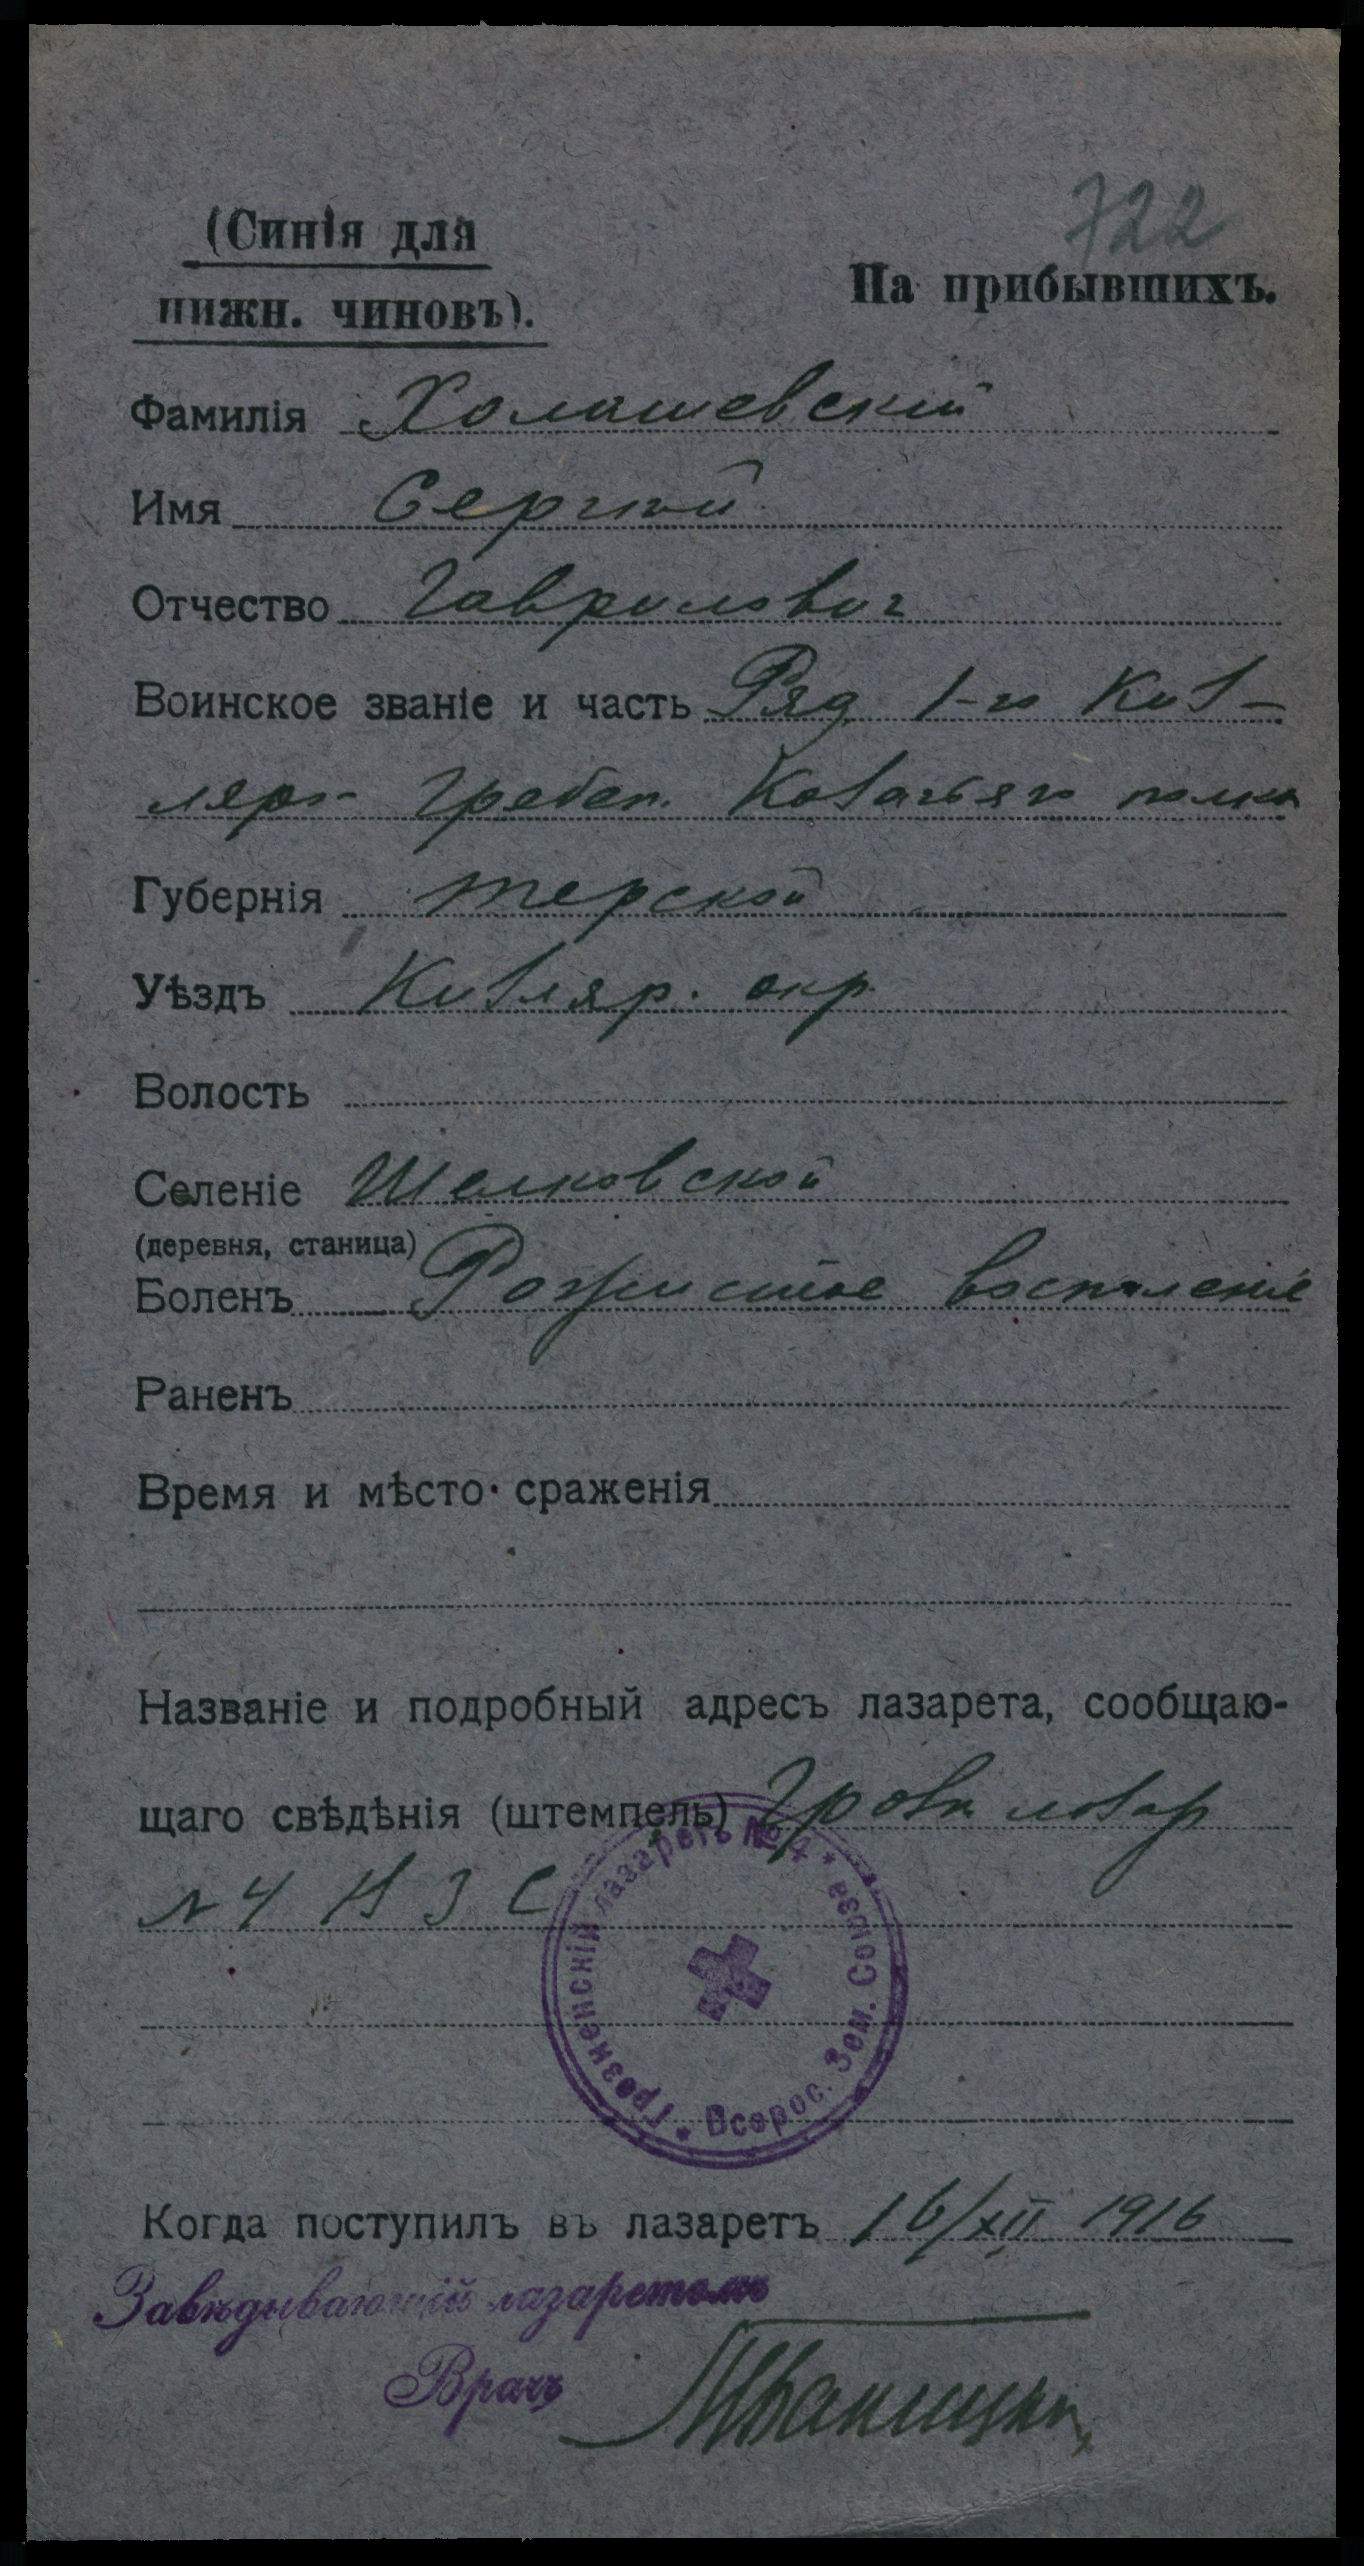 722
(Синія для
нижн. чиновъ).
На прибывшихъ.
Фамилія Холашевскій
Имя Сергѣй
Отчество Гаврилович
Воинское званіе и часть Ряд 1-го Киз-
ляро- Гребен. Козачьяго полка
Губернія Терской
Уѣздъ Кизляр. окр.
Волость
Селеніе Шелковской
(деревня, станица)
Боленъ Рожистое воспаленіе
Раненъ
Время и мѣсто сраженія
Названіе и подробный адресъ лазарета, сообщаю-
щаго свѣдѣнія (штемпель) Грозн лазар
№ 4 В З С
Грозненскій лазаретъ № 4 * Всерос. Зем. Союза *
Когда поступилъ въ лазаретъ 16/XII 1916
Завѣдывающій лазаретомъ
Врачъ